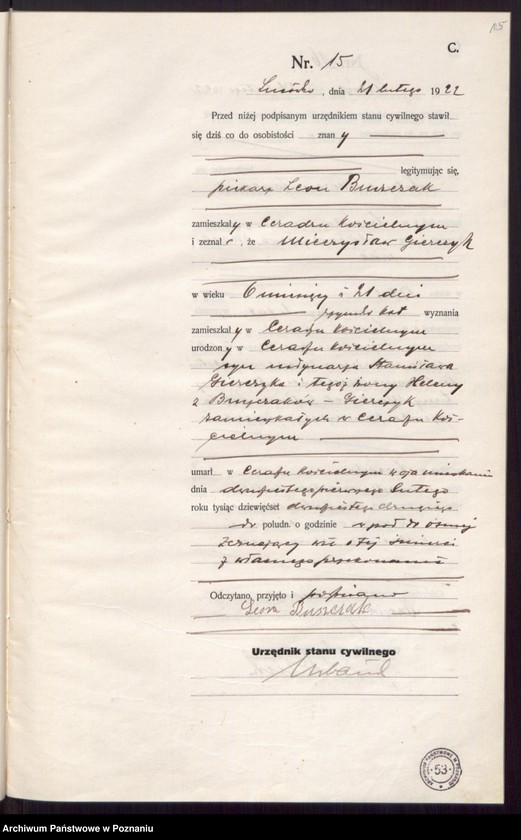 115
C.
Nr. 15
Lusówko, dnia 21 lutego 1922
Przed niżej podpisanym urzędnikiem stanu cywilnego stawił
się dziś co do osobistości znany
legitymując się,
piekarz Leon Buszczak
zamieszkały w Ceradzu Kościelnym
i zeznał, że Mieczysław Gierczyk
w wieku 6 miesięcy i 21 dni
rzymsko kat wyznania
zamieszkały w Ceradzu Kościelnym
urodzony w Ceradzu Kościelnym
syn młynarza Stanisława
Gierczyka i tegoż żony Heleny
z Buszczaków - Gierczyk
zamieszkałych w Ceradzu Koś-
cielnym
umarł w Ceradzu Kościelnym w mieszkaniu
dnia dwudziestego pierwszego lutego
roku tysiąc dziewięćset dwudziestego drugiego
połudn. o godzinie w pół do ósmej
Zeznający wie o tej śmierci
z własnego przekonania
Odczytano, przyjęto i podpisano
Leon Buszczak
Urzędnik stanu cywilnego
Urband
ARCHIWUM PAŃSTWOWE W POZNANIU
53
Archiwum Państwowe w Poznaniu